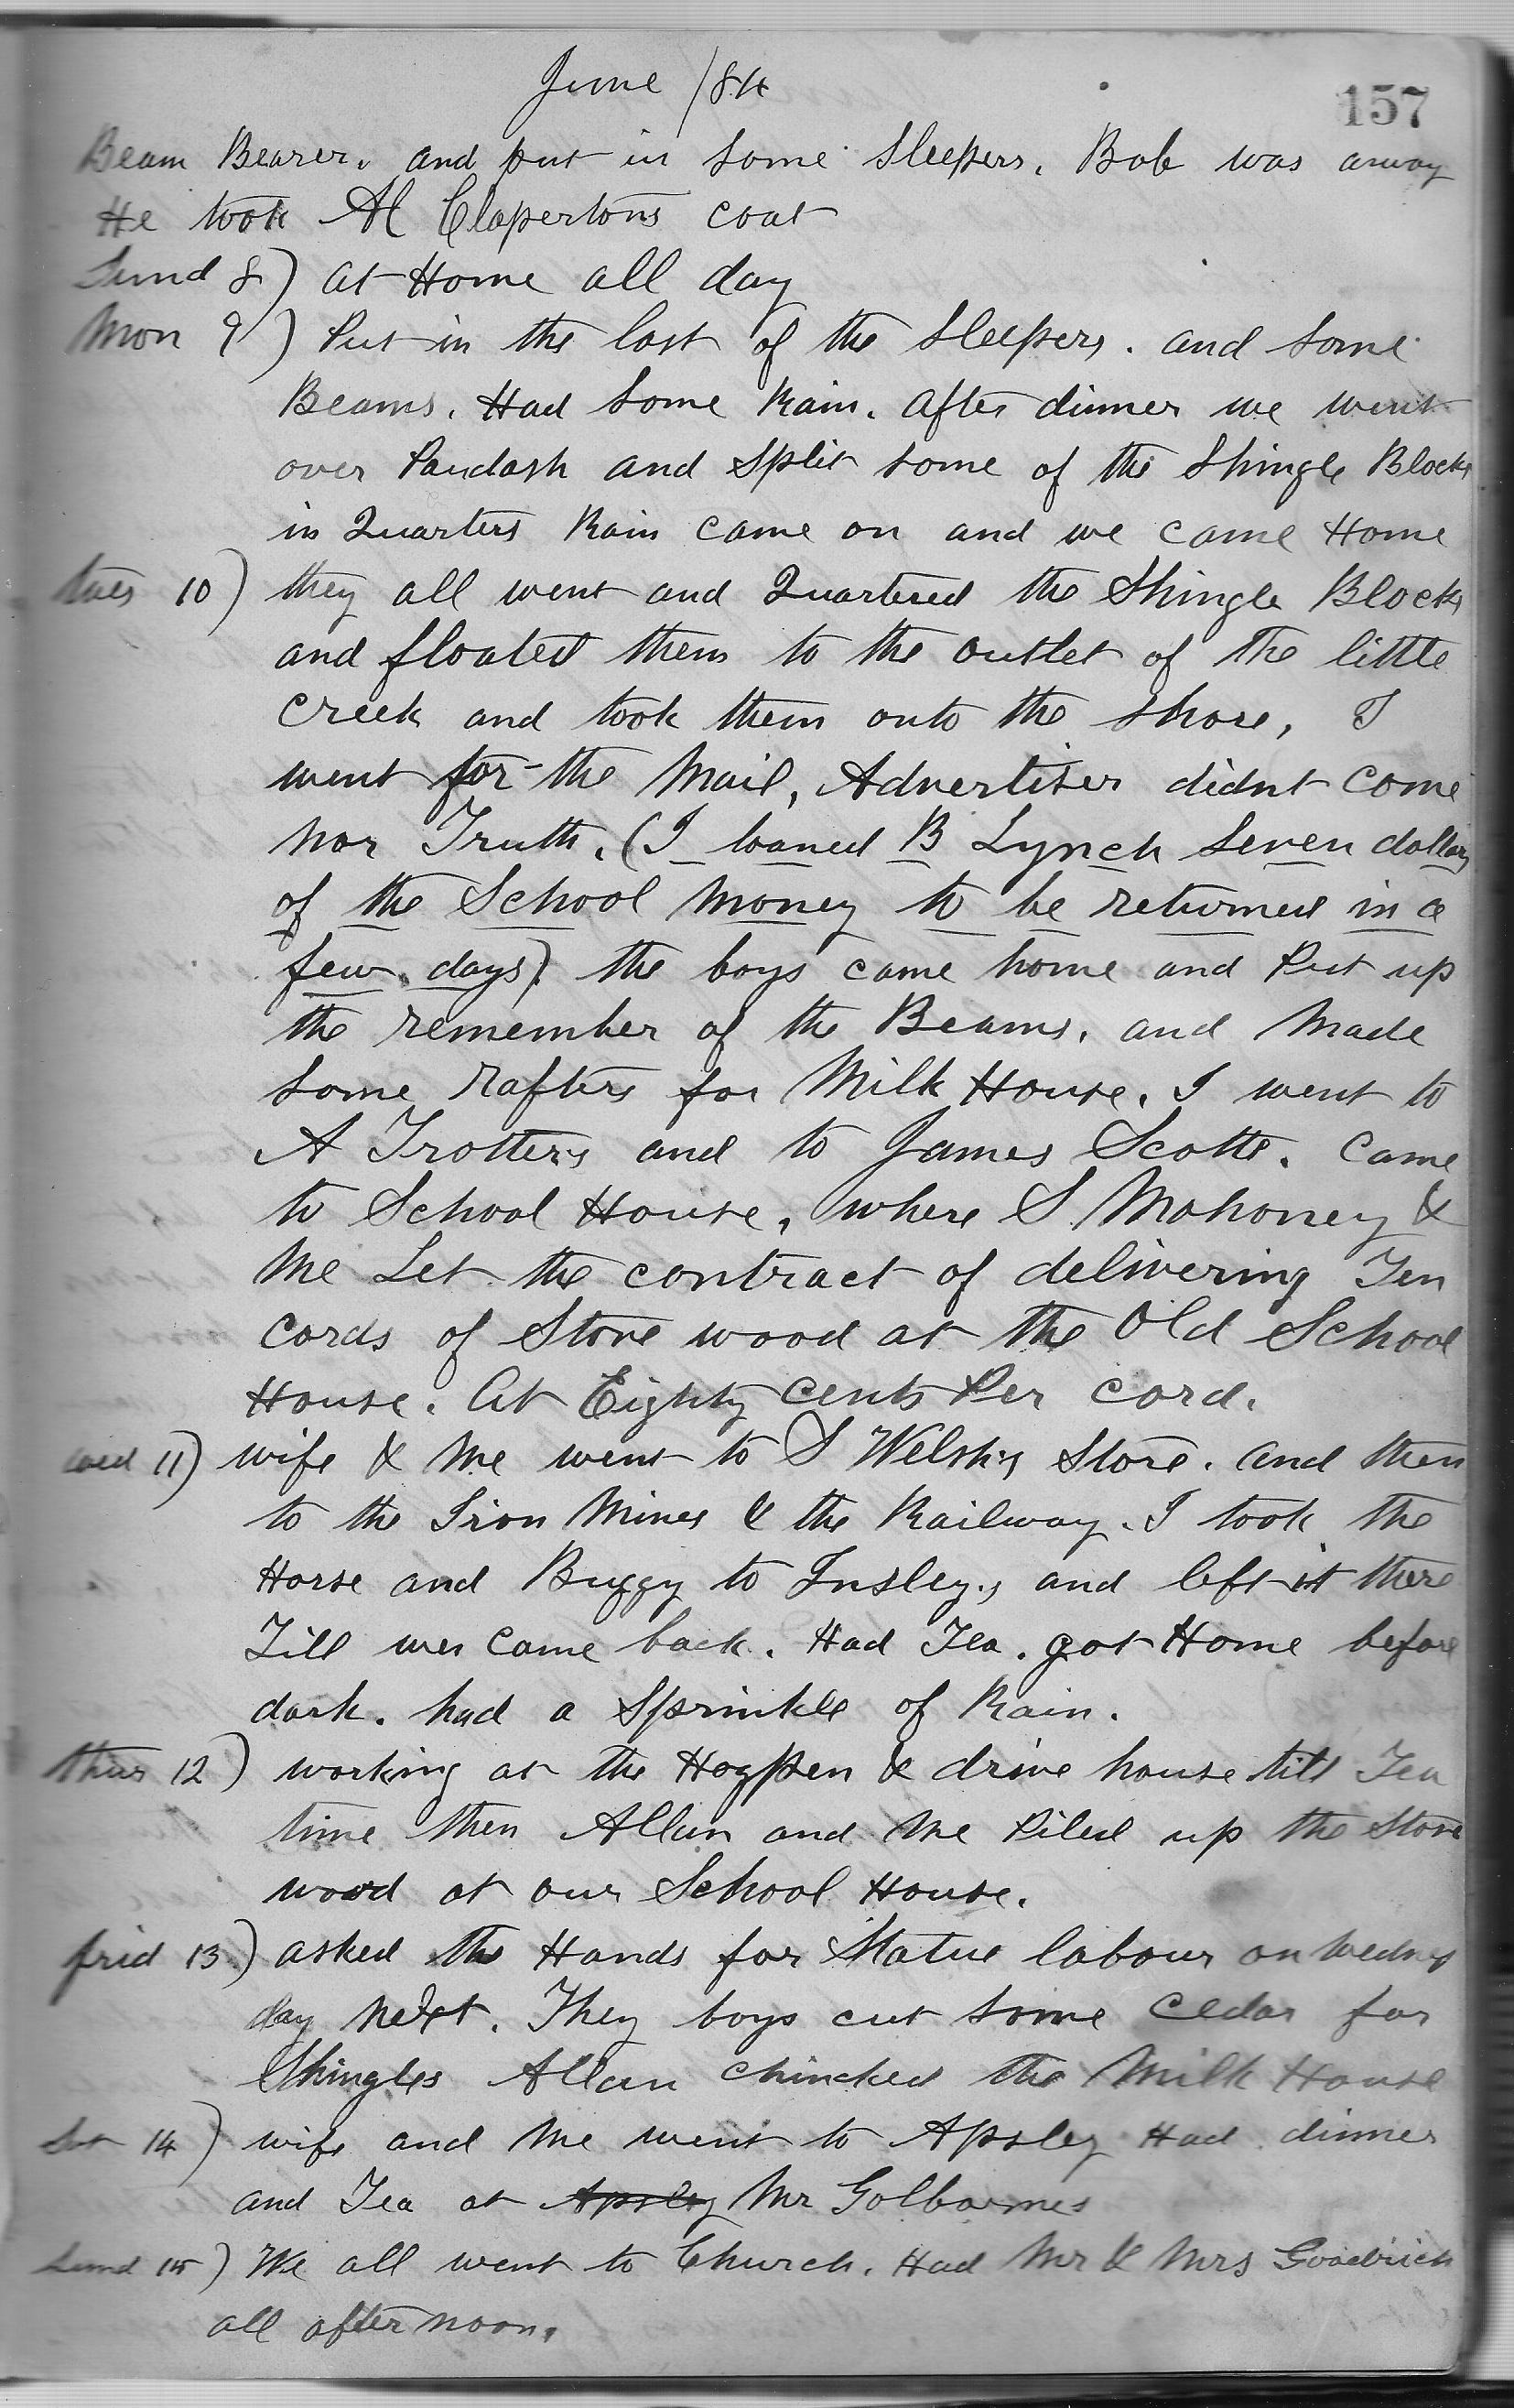 June /84
157
Beam Bearer. and put in some sleepers. Bob was away
He took Al Clapertons coat
Sund 8) at Home all day
Mon 9) Put in the last of the sleepers. and some
Beams. Had some Rain. after dinner we went
over Paudash and split some of the Shingle Blocks
in Quarters Rain came on and we came Home
tues 10) they all went and Quartered the Shingle Blocks
and floated them to the outlet of The little
creek and took them onto the shore, I
went for the Mail, Advertiser didnt come
nor Truth. (I loaned B Lynch seven dollars
of the School money to be returned in a
few days). the boys came home and Put up
the remember of the Beams. and Made
some rafters for Milk House. I went to
A Trotters and to James Scotts. Came
to School House, where S Mahoney &
Me Let the contract of delivering Ten
cords of Stove wood at the Old School
House. At Eighty cents Per cord.
wed 11) wife & Me went to S Welshs Store. and then
to the Iron Mines & the Railway. I took the
Horse and Buggy to Insleys, and left it there
Till wee came back. Had Tea. got Home before
dark. had a sprinkle of Rain.
thur 12) working at the Hogpen & drive house till Tea
time then Allan and Me Piled up the Stove
wood at our School House.
frid 13) asked the Hands for Statue labour on wednes
day next. They boys cut some cedar for
Shingles Allan chincked the Milk House
Sat 14) wife and Me went to Apsley Had dinner
and Tea at Apsley Mr Golbournes
Sund 15) We all went to Church. Had Mr & Mrs Goodrich
all after noon.